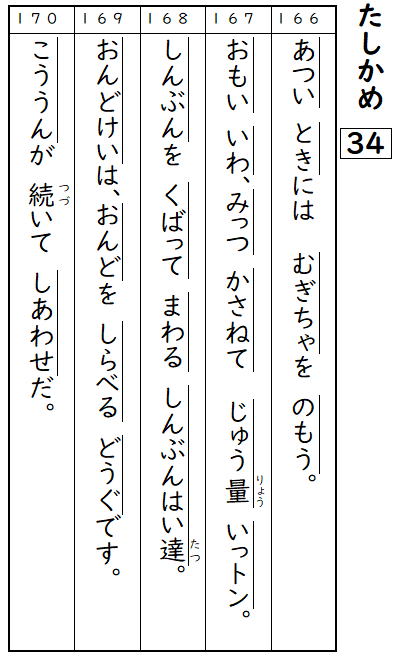 たしかめ 34
166
あつい ときには むぎちゃを のもう。
167
おもい いわ、みっつ かさねて じゅう量 いっトン。
りょう
168
しんぶんを くばって まわる しんぶんはい達。
たつ
169
おんどけいは、おんどを しらべる どうぐです。
170
こううんが 続いて しあわせだ。
つづ